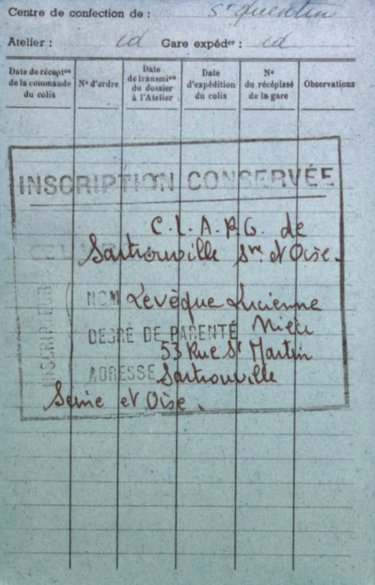 Centre de confection de : St Quentin
Atelier : id Gare expédr : id
Date de récepton de la commande du colis
No d'ordre
Date de transmion du dossier à l'Atelier
Date d'expédition du colis
No du récépissé de la gare
Observations
INSCRIPTION CONSERVÉE
C.L.A.P.G. de
Sartrouville Sne et Oise.
NOM Levèque Lucienne
DEGRÉ DE PARENTÉ Nièce
53 Rue St Martin
ADRESSE Sartrouville
Seine et Oise.